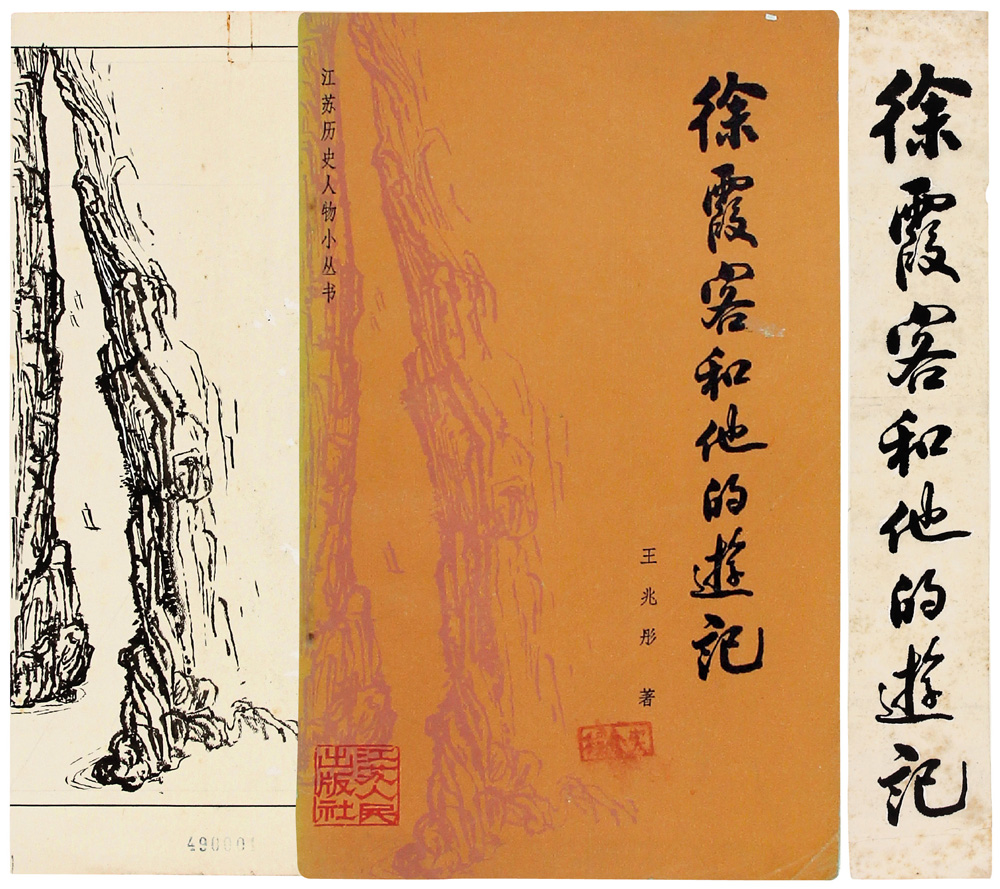 江苏历史人物小丛书
徐霞客和他的遊記
王兆彤 著
江苏人民
出版社
490001
徐霞客和他的遊記